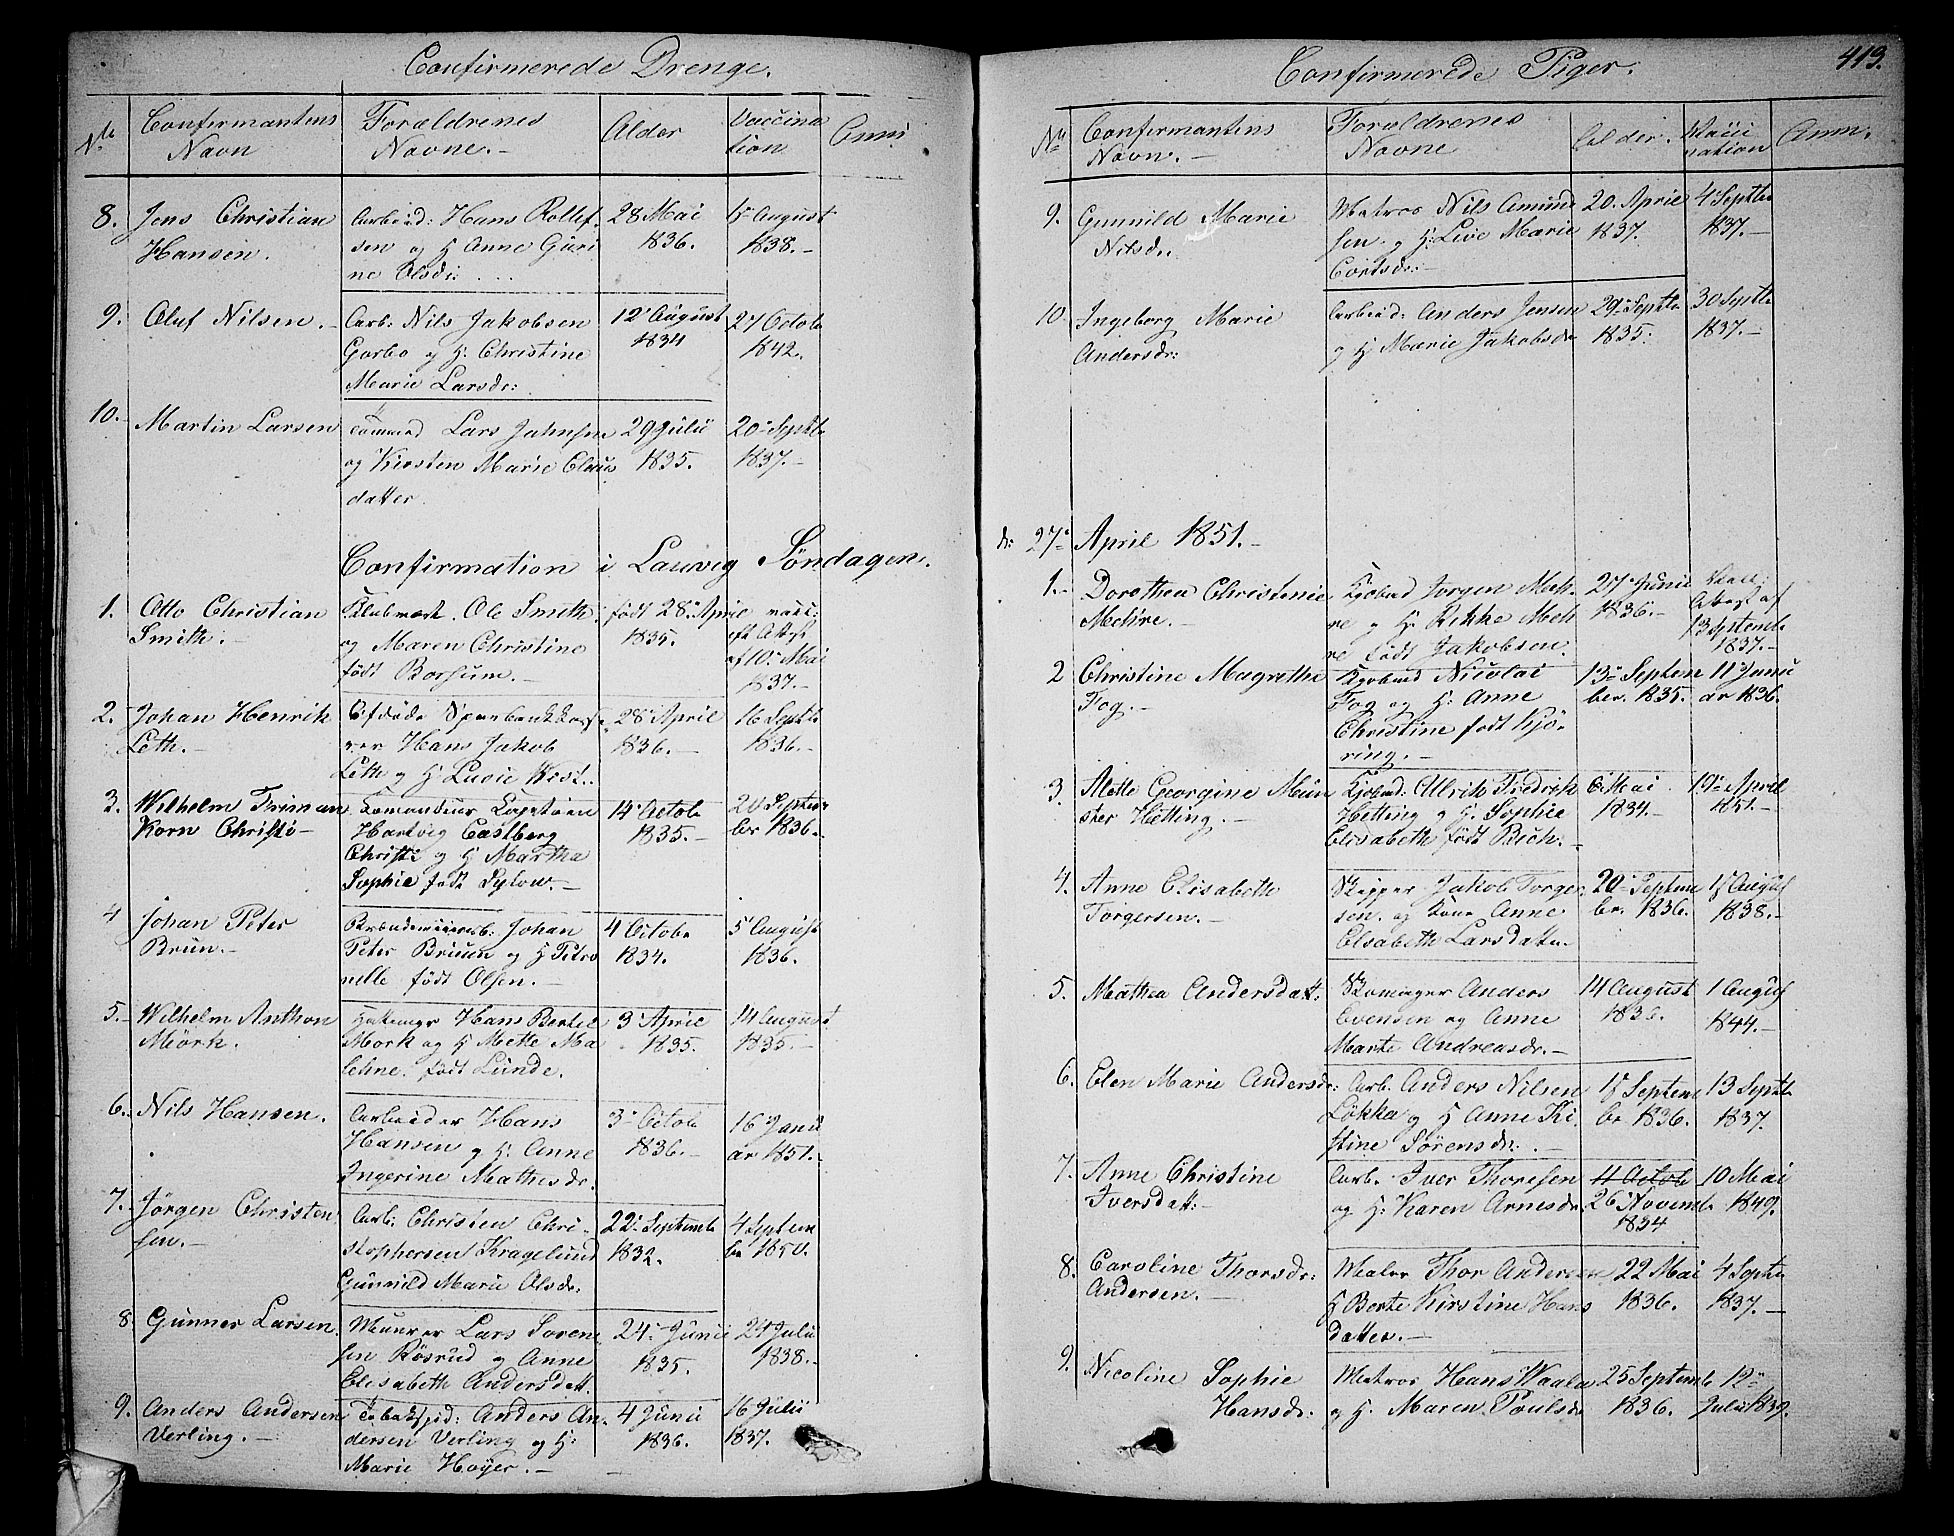 Confirmerede Drenge.
No Confirmantens Navn Forældrenes Navne.- Alder Vaccination Anm:
8. Jens Christian Hansen.
Arbeid: Hans Rollef-
sen og H Anne Guri-
ne Olsdr: . . .
28 Mai 1836.
15 August 1838.-
9. Oluf Nilsen.-
Arb: Nils Jakobsen
Gorbo og H: Christine
Marie Larsdr:
12' August 1834
27 Octob 1842.-
10. Martin Larsen
Tømmerd Lars Jahnsen
og Kirsten Marie Claus
datter.
29 Julii 1835.
20 Septbr 1837.-
Confirmation i Laurvig Søndagen.
1. Otto Christian Smith.-
Klubvært. Ole Smith.
og Maren Christine
født Borsum.-
født 28 April 1835.
vacc:
eft Attest
af 10 Mai
1837.-
2. Johan Henrik Leth.-
Afdøde Sparebankkasse-
rer Hans Jakob
Leth og H Lucie Wist.
28 April 1836.-
16 Septbr 1836.-
3. Wilhelm Friman Korn Christi-
Comandeur Capitain
Hartvig Castberg
Christi og H Martha
Sophie født Sylow.-
14 Octob 1835.-
20 Septem
ber 1836.-
4 Johan Peter Brun.-
Johan
Peter Bruun og H Petro
nelle født Olsen.-
4 Octobr 1834.
5 August 1836.
5.- Wilhelm Anthon Mörk.
Hans Bertel
Mork og H Mette Ma
lehne født Lunde.
3' April 1835.
14 August 1835.-
6. Nils Hansen.
Arbeider Hans
Hansen og H. Anne
Ingerine Mathisdr.
3' Octob 1836.-
16 Janu
ar 1851.-
7. Jörgen Christen
sen.-
Arb: Christen Chri-
stophersen Kragelund
Gunnild Marie Olsdr:
22 Septemb 1832.
4 Septem
br 1850.
8. Gunner Larsen.
Murer Lars Soren
sen Rösrud og Anne
Elisabeth Andersdatt.
24 Junii 1835.
24 Julii 1838.-
9. Anders Andersen Verling.-
Tobakspid: Anders An-
dersen Verling og H:
Marie Hoyer.-
4 Junii 1836.
16 Julii 1837.
Confirmerede Piger. 413.
No Confirmantens Navn.- Forældrenes Navne Alder. Vacci nation Anm.
9. Gunnild Marie Nilsdr.
Matros Nils Amund
sen og H: Live Marie
Cortsdr:-
20 April 1837.
4 Septbr 1837.-
10. Ingeborg Marie Andersdr:
Arbeid: Anders Jensen
og H Marie Jakobsdr
29 Septbr 1835.
30 Septbr 1837.-
d: 27' April 1851.-
1.- Dorothea Christenie Mehre.-
Kjøbmd Jorgen Meh-
re og H: Rikke Meh
re født Jakobsen.
27 Junii 1836.-
Attest af
13 Septemb
1837.-
2 Christine Magrethe Fog.-
Kjøbmd Nicolai
Fog og H: Anne
Christine født Kjö-
ring.-
13 Septem
ber. 1835.
11 Janu
ar 1836.
3. Mette Georgine Mün
ster Hetting.-
Kjøbmd. Ulrik Fredrik
Hetting og H: Sophie
Elisabeth født Bich.-
6 Mai 1834.
19 April 1851.-
4. Anne Elisabeth Torgersen.-
Skipper Jakob Torger
sen. og Kone Anne
Elsabeth Larsdatter-
20 Septem
br. 1836.
15 August 1838.-
5. Mathea Andersdatt.
Skomager Anders
Evensen og Anne
Marte Andreasdr.-
14 August 1836.
1 August 1844.-
6. Elen Marie Andersdr:
Arb. Anders Nilsen
Lökka og H Anne Ki-
stine Sörensdr:-
15 Septem
br 1836.
13 Septbr 1837.
7. Anne Christine Iversdatt:-
Arb. Iver Thoresen
og H: Karen Arnesdr
11 Octob
26 Novemb. 1834
10 Mai 1849.
8. Caroline Thorsdr: Andersen.-
Maler Thor Andersen
H Borte Kirstine Hans
datter.-
22 Mai 1836.
4 Septbr 1837.-
9. Nicoline Sophie Hansdr:
Matros Hans Waala
og H. Maren Poulsdr
25 Septemb 1836.
12
Julii 1839.